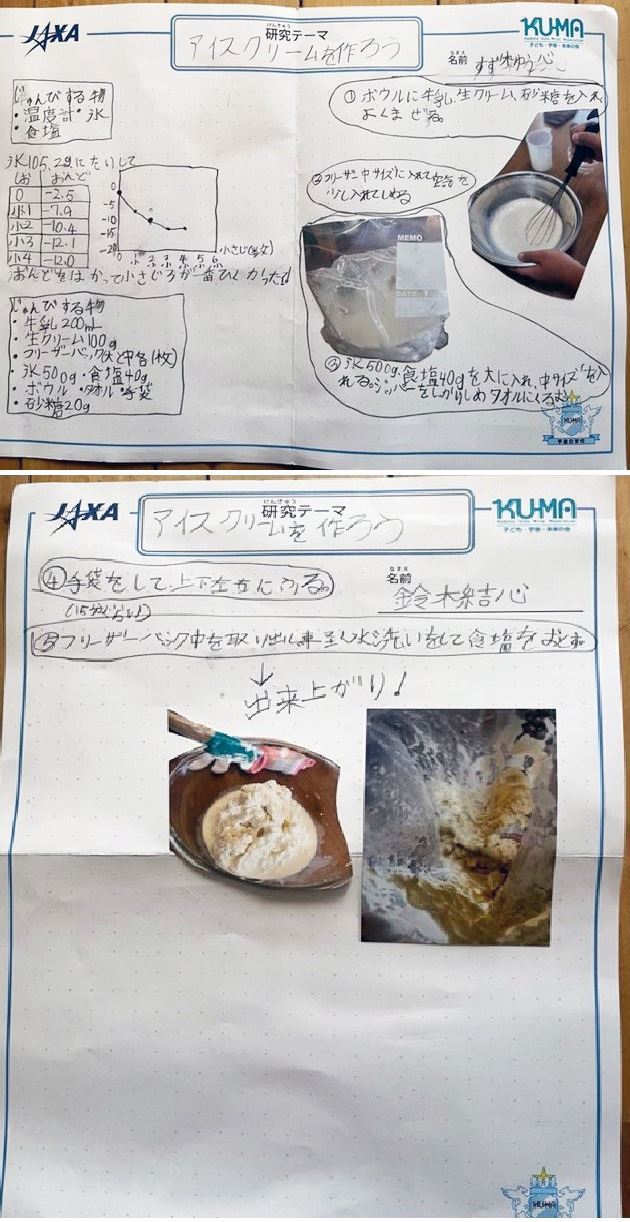 JAXA
けんきゅう
研究テーマ
アイスクリームを作ろう
KU-MA
子ども・宇宙・未来の会
なまえ
名前
じゅんびする物
・温度計・氷
・食塩
氷105.2gにたいして
しお おんど
0 -2.5
小1 -7.9
小2 -10.4
小3 -12.1
小4 -12.0
0
-5
-10
-15
-20
小 1 2 3 4 5 6
小さじ
おんどをはかって小さじ3が一番ひくかった!
じゅんびする物
・牛乳 200mL
・生クリーム100g
・フリーザーバック(大と中各1枚)
・氷500g・食塩40g
・ボウル・タオル・手袋
・砂糖20g
①ボウルに牛乳、生クリーム、砂糖を入れ
よくまぜる。
②フリーザー中サイズに入れて空気を
少し入れてしめる
MEMO
DATE
③氷500g、食塩40gを大に入れ、中サイズを入
れる。ジッパーをしっかりしめタオルにくるむ
KU-MA
宇宙の学校
JAXA
けんきゅう
研究テーマ
アイスクリームを作ろう
KU-MA
子ども・宇宙・未来の会
④手袋をして上下左右にふる。
(15分くらい)
なまえ
名前
鈴木結心
⑤フリーザーバック中を取り出し軽く水洗いをして食塩をおとす
↓
出来上がり!
KU-MA